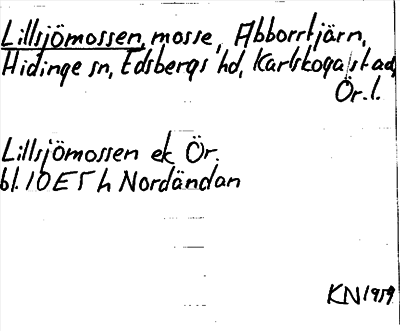 Lillsjömossen, mosse, Abborrtjärn,
Hidinge sn, Edsbergs hd, Karlskoga stad,
Ör. l.
Lillsjömossen ek Ör.
bl. 10E5h Nordändan
KN 1959